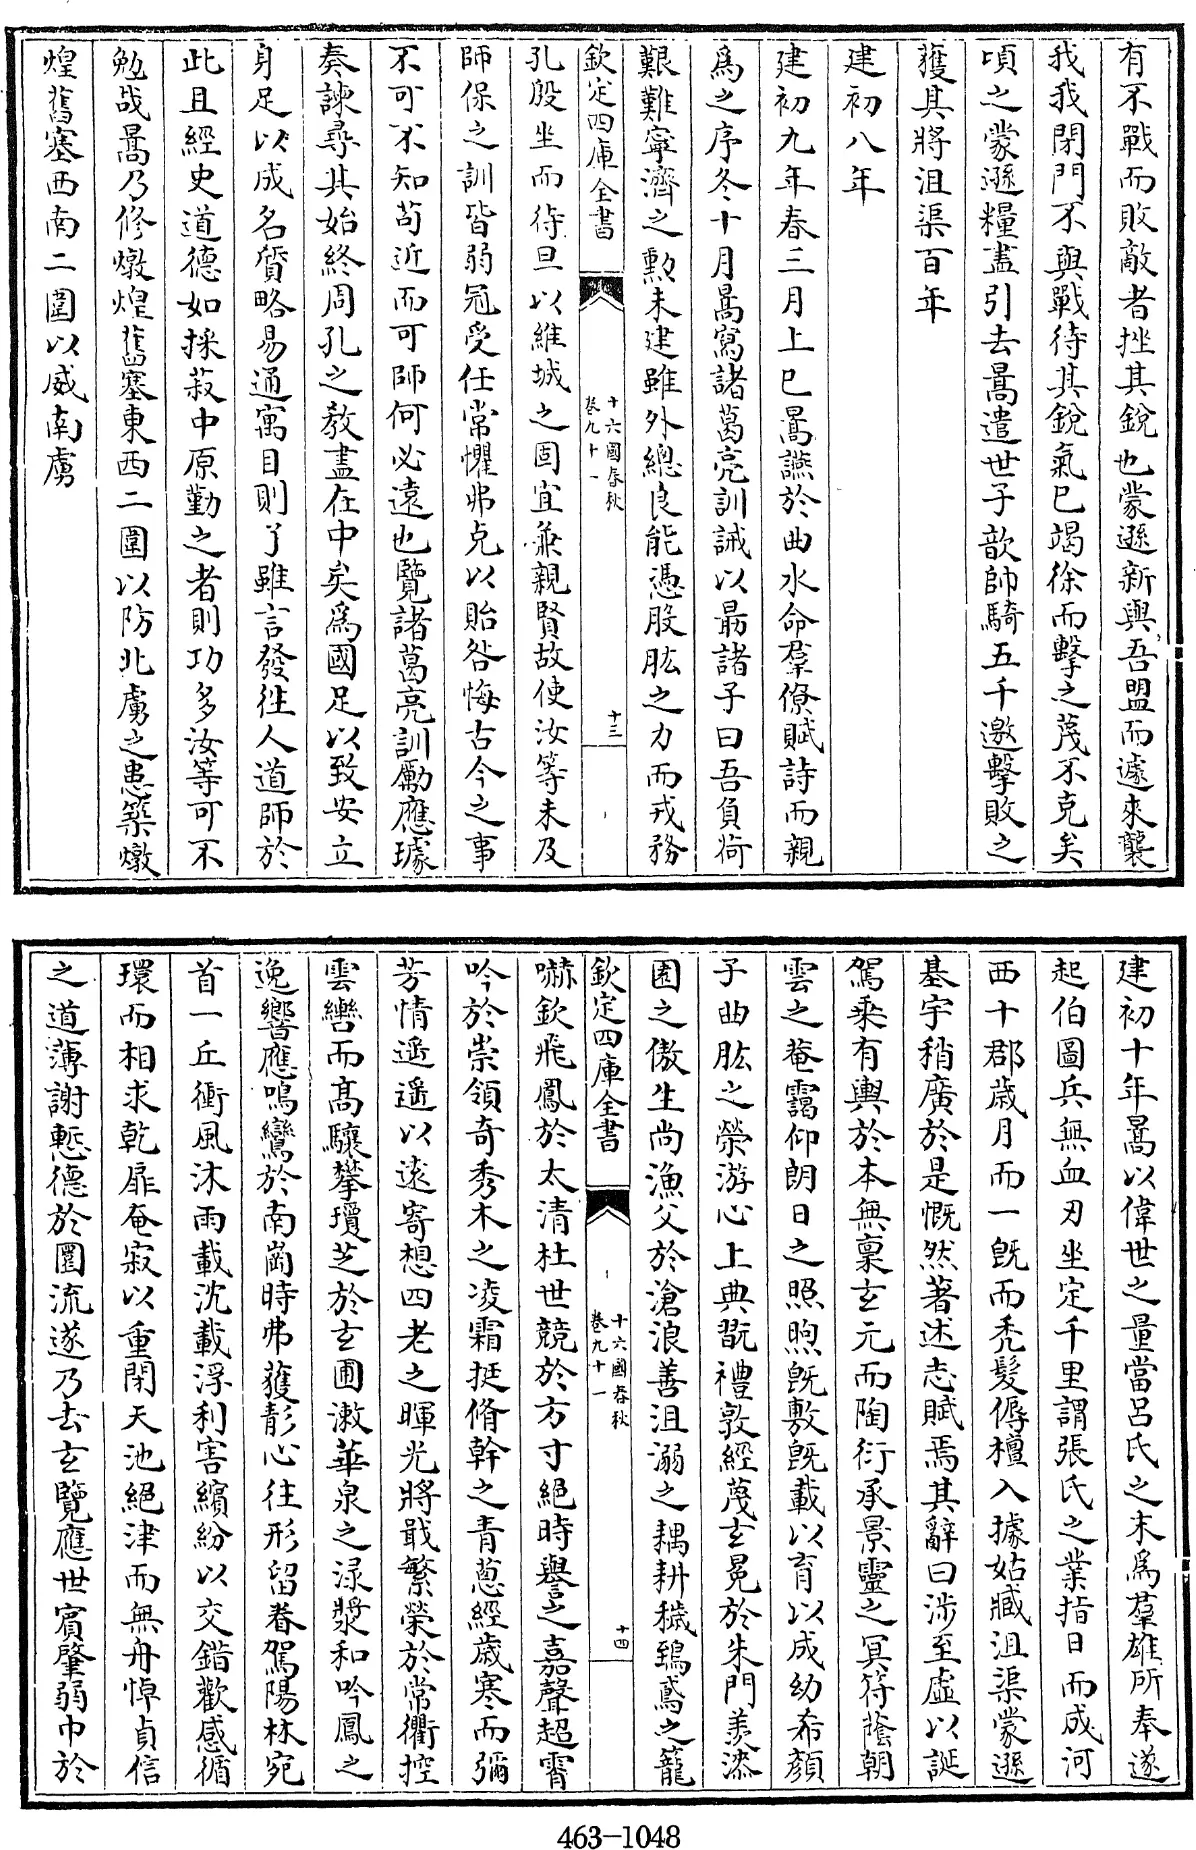 有不戰而敗敵者挫其銳也蒙遜新與吾盟而遽來襲
我我閉門不與戰待其銳氣已竭徐而擊之蔑不克矣
頃之蒙遜糧盡引去暠遣世子歆帥騎五千邀擊敗之
獲其將沮渠百年
建初八年
建初九年春三月上巳暠讌於曲水命羣僚賦詩而親
爲之序冬十月暠寫諸葛亮訓誡以勗諸子曰吾負荷
艱難寧濟之勲未建雖外總良能憑股肱之力而戎務
欽定四庫全書
十六國春秋
卷九十一
十三
孔殷坐而待旦以維城之固宜兼親賢故使汝等未及
師保之訓皆弱冠受任常懼弗克以貽咎悔古今之事
不可不知苟近而可師何必遠也覽諸葛亮訓勵應璩
奏諫尋其始終周孔之教盡在中矣爲國足以致安立
身足以成名質略易通寓目則了雖言發徃人道師於
此且經史道德如採菽中原勤之者則功多汝等可不
勉哉暠乃修燉煌舊塞東西二圍以防北虜之患築燉
煌舊塞西南二圍以威南虜
建初十年暠以偉世之量當呂氏之末爲羣雄所奉遂
起伯圖兵無血刃坐定千里謂張氏之業指日而成河
西十郡歲月而一旣而禿髮傉檀入據姑臧沮渠蒙遜
基宇稍廣於是慨然著述志賦焉其辭曰涉至虛以誕
駕乘有輿於本無稟玄元而陶衍承景靈之冥符蔭朝
雲之菴靄仰朗日之照煦旣敷旣載以育以成幼希顏
子曲肱之榮游心上典翫禮敦經蔑玄冕於朱門羨漆
園之傲生尚漁父於滄浪善沮溺之耦耕穢鵄鳶之籠
欽定四庫全書
十六國春秋
卷九十一
十四
嚇欽飛鳳於太清杜世競於方寸絕時譽之嘉聲超霄
吟於崇領奇秀木之凌霜挺脩幹之青蔥經歲寒而彌
芳情遥遥以遠寄想四老之暉光將戢繁榮於常衢控
雲轡而高驤攀瓊芝於玄圃潄華泉之淥漿和吟鳳之
逸響應鳴鸞於南崗時弗獲彰心往形留眷駕陽林宛
首一丘衝風沐雨載沈載浮利害繽紛以交錯歡感循
環而相求乾扉奄寂以重閉天池絕津而無舟悼貞信
之道薄謝慙德於圜流遂乃去玄覽應世賓肇弱巾於
463-1048